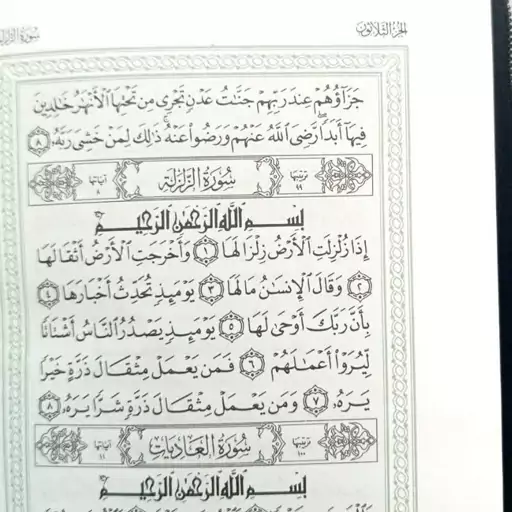 الجزء الثلاثون
سورة الزلزلة
جَزَآؤُهُمْ عِندَ رَبِّهِمْ جَنَّـٰتُ عَدْنٍ تَجْرِى مِن تَحْتِهَا ٱلْأَنْهَـٰرُ خَـٰلِدِينَ
فِيهَآ أَبَدًا ۖ رَّضِىَ ٱللَّهُ عَنْهُمْ وَرَضُوا۟ عَنْهُ ۚ ذَٰلِكَ لِمَنْ خَشِىَ رَبَّهُۥ ٨
ترتيبها ٩٩ سُورَةُ الزَّلْزَلَةِ آياتها ٨
بِسْمِ ٱللَّهِ ٱلرَّحْمَـٰنِ ٱلرَّحِيمِ
إِذَا زُلْزِلَتِ ٱلْأَرْضُ زِلْزَالَهَا ١ وَأَخْرَجَتِ ٱلْأَرْضُ أَثْقَالَهَا
٢ وَقَالَ ٱلْإِنسَـٰنُ مَا لَهَا ٣ يَوْمَئِذٍ تُحَدِّثُ أَخْبَارَهَا ٤
بِأَنَّ رَبَّكَ أَوْحَىٰ لَهَا ٥ يَوْمَئِذٍ يَصْدُرُ ٱلنَّاسُ أَشْتَاتًا
لِّيُرَوْا۟ أَعْمَـٰلَهُمْ ٦ فَمَن يَعْمَلْ مِثْقَالَ ذَرَّةٍ خَيْرًا
يَرَهُۥ ٧ وَمَن يَعْمَلْ مِثْقَالَ ذَرَّةٍ شَرًّا يَرَهُۥ ٨
ترتيبها ١٠٠ سُورَةُ العَادِيَاتِ آياتها ١١
بِسْمِ ٱللَّهِ ٱلرَّحْمَـٰنِ ٱلرَّحِيمِ